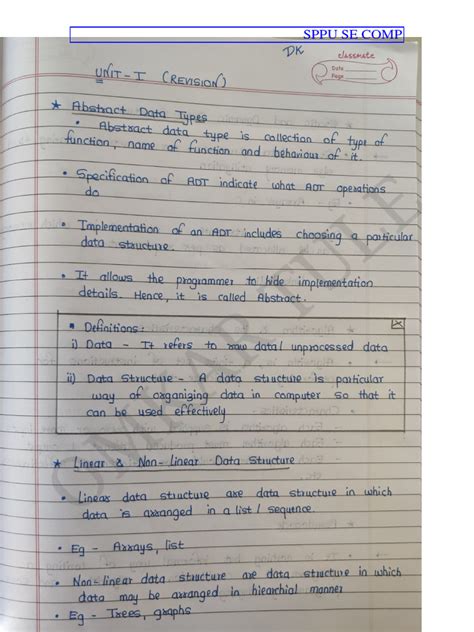 SPPU SE COMP
DK
classmate
Date
Page
UNIT-I (REVISION)
★ Abstract Data Types
• Abstract data type is collection of type of
function, name of function and behaviour of it.
• Specification of ADT indicate what ADT operations
do
• Implementation of an ADT includes choosing a particular
data structure.
• It allows the programmer to hide implementation
details. Hence, it is called Abstract.
• Definitions:
i) Data - It refers to raw data/ unprocessed data
ii) Data Structure - A data structure is particular
way of organizing data in computer so that it
can be used effectively
★ Linear & Non-Linear Data Structure
• Linear data structure are data structure in which
data is arranged in a list / sequence.
• Eg - Arrays, list
• Non-linear data structure are data structure in which
data may be arranged in hiearchial manner
• Eg - Trees, graphs
OMKAR TULE